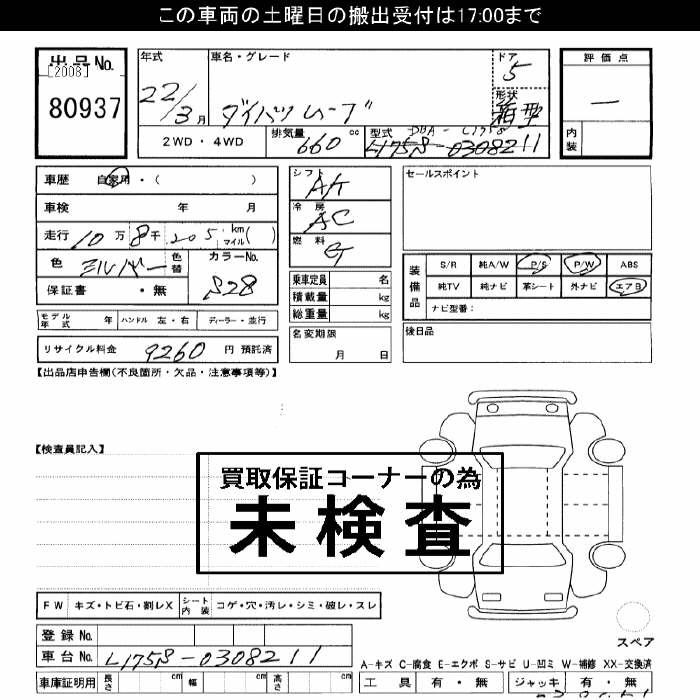 この車両の土曜日の搬出受付は17:00まで
出品No.
[2008]
80937
年式
22/3月
車名・グレード
ダイハツムーブ
ドア
5
形状
箱型
評価点
—
内装
2WD・4WD
排気量
660 cc
型式
DBA-L175S
L175S-0308211
車歴 自家用・( )
車検 年 月
走行 10万 8千 205 km マイル( )
色 シルバー 色替
カラーNo.
S28
保証書 ・無
シフト
AT
冷房
AC
燃料
G
乗車定員 名
積載量 kg
総重量 kg
名変期限
月 日
セールスポイント
装備品
S/R 純A/W P/S P/W ABS
純TV 純ナビ 革シート 外ナビ エアB
ナビ型番:
後日品
モデル年式 年 ハンドル 左・右 ディーラー・並行
リサイクル料金 9260 円 預託済
【出品店申告欄(不良箇所・欠品・注意事項等)】
【検査員記入】
買取保証コーナーの為
未検査
FW キズ・トビ石・割レX シート内装 コゲ・穴・汚レ・シミ・破レ・スレ
登録No.
車台No. L175S-0308211
車庫証明用 長さ cm 幅 cm 高さ cm
スペア
A-キズ C-腐食 E-エクボ S-サビ U-凹ミ W-補修 XX-交換済
工具 有・無 ジャッキ 有・無